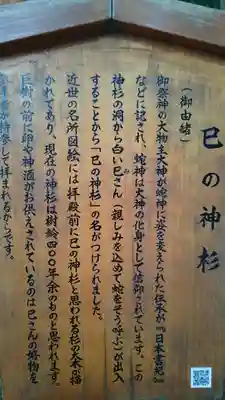 巳の神杉
(御由緒)
御祭神の大物主大神が蛇神に姿を変えられた伝承が『日本書紀』
などに記され、蛇神は大神の化身として信仰されています。この
神杉の洞から白い巳さん(親しみを込めて蛇をそう呼ぶ)が出入
することから「巳の神杉」の名がつけられました。
近世の名所図絵には拝殿前に巳の神杉と思われる杉の大木が描
かれてあり、現在の神杉は樹齢四〇〇年余のものと思われます。
巨樹の前に卵や神酒がお供えされているのは巳さんの好物を
参拝者が持参して拝まれるからです。